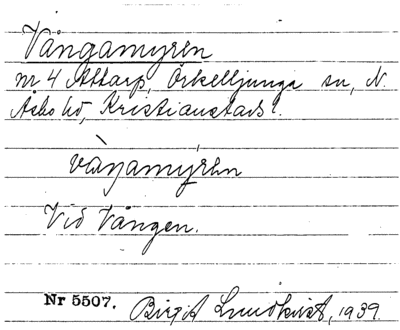 Vångamyren
nr 4 Attarp, Örkelljunga sn, N.
Åsbo hd, Kristianstads l.
våŋamýrən
Vid Vången.
Nr 5507. Birgit Lundkvist, 1939.